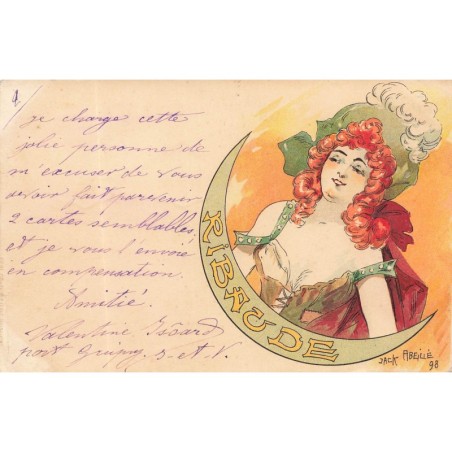 je charge cette
jolie personne de
m'excuser de vous
avoir fait parvenir
2 cartes semblables
et je vous l'envoie
en compensation.
Amitié.
Valentine Isoard
port S. et V.
RIBAUDE
JACK ABEILLÉ
98